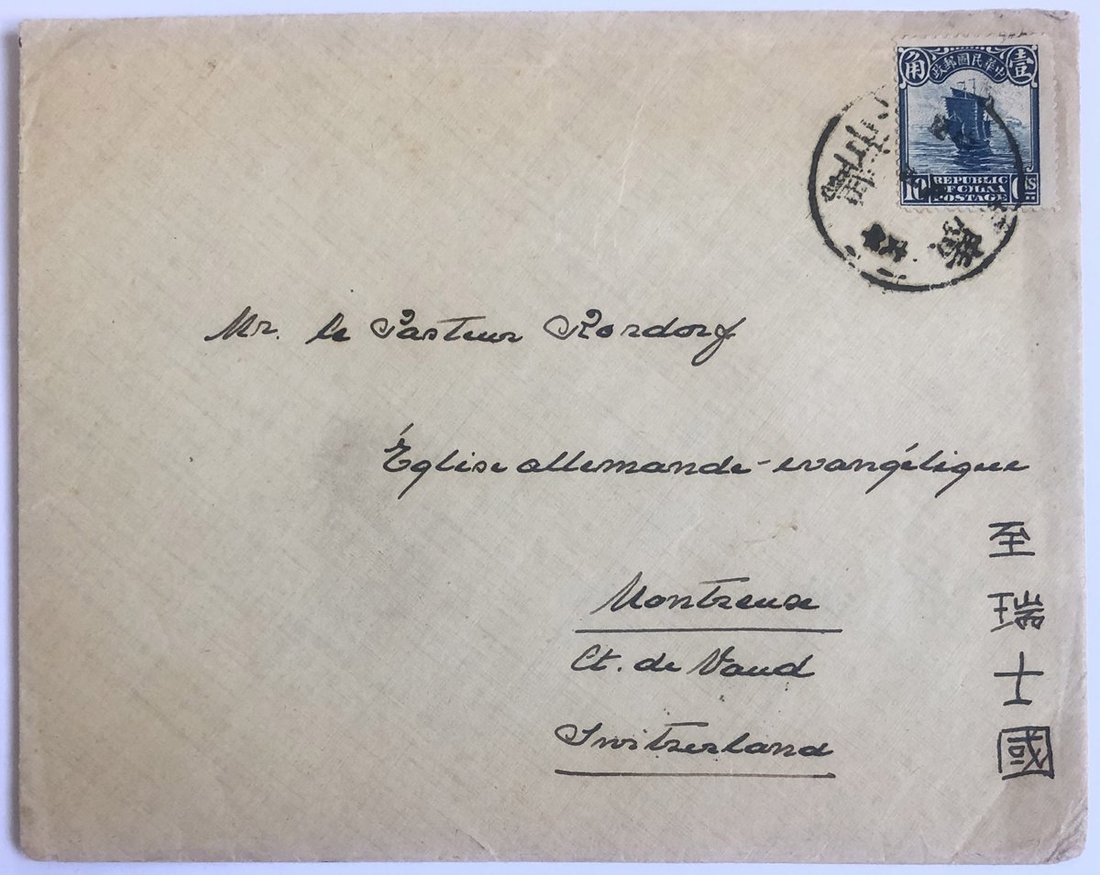 角 政郵國民華中 壹
10 REPUBLIC OF CHINA POSTAGE CTS
Mr. le Pasteur Rordorf
Église allemande-evangélique
Montreux
Ct. de Vaud
Switzerland
至瑞士國